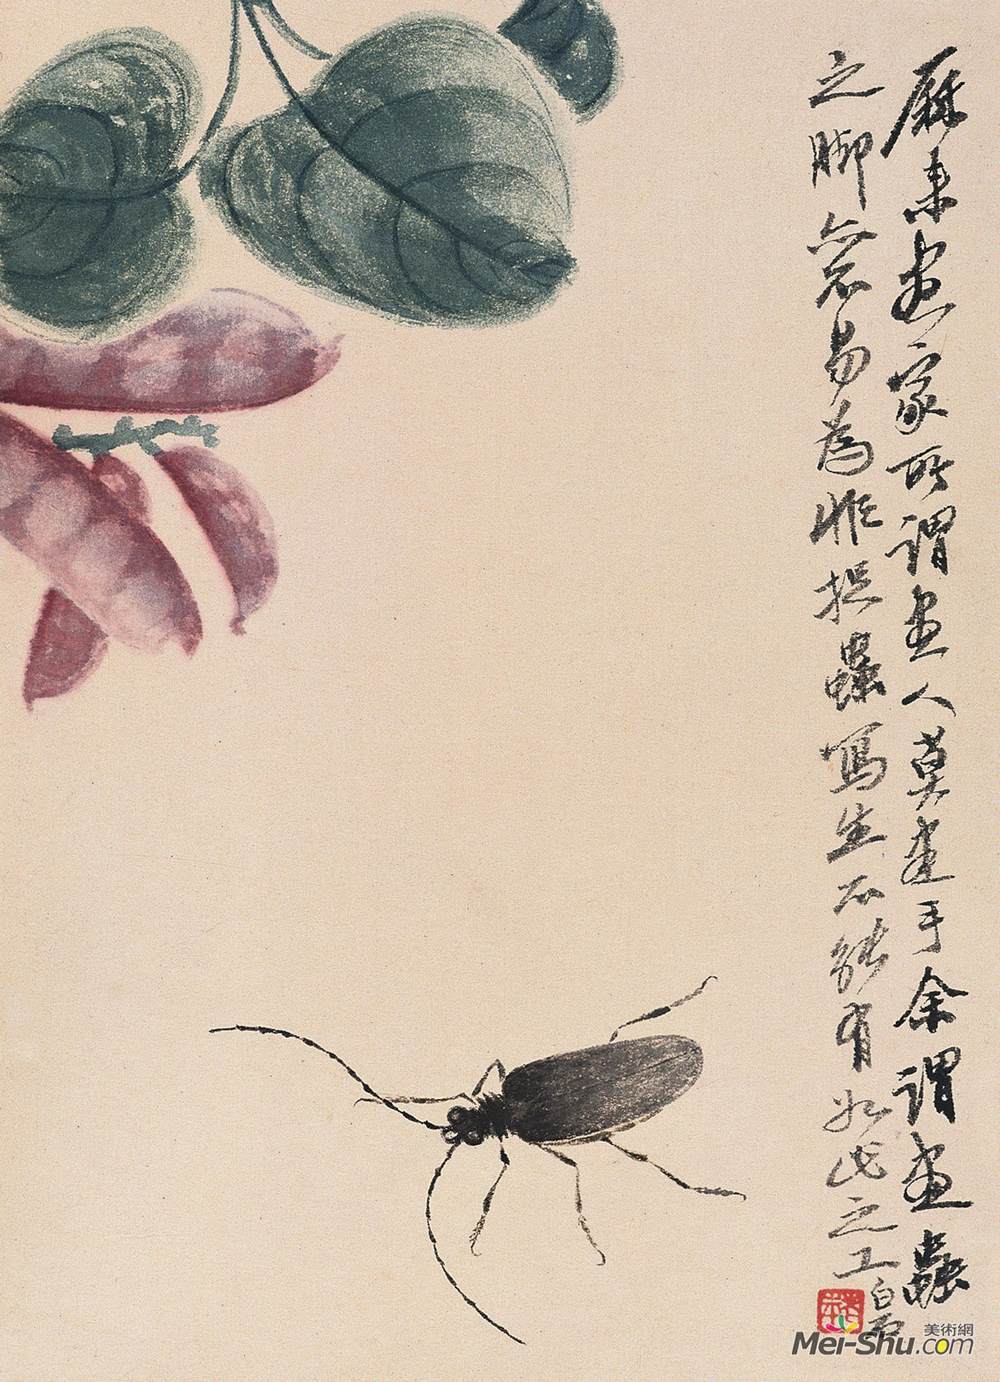 厤來畫家所謂畫人莫畫手余謂畫蟲
之脚亦不易為非捉蟲寫生不能有如此之工
白石
美術網
Mei-Shu.com